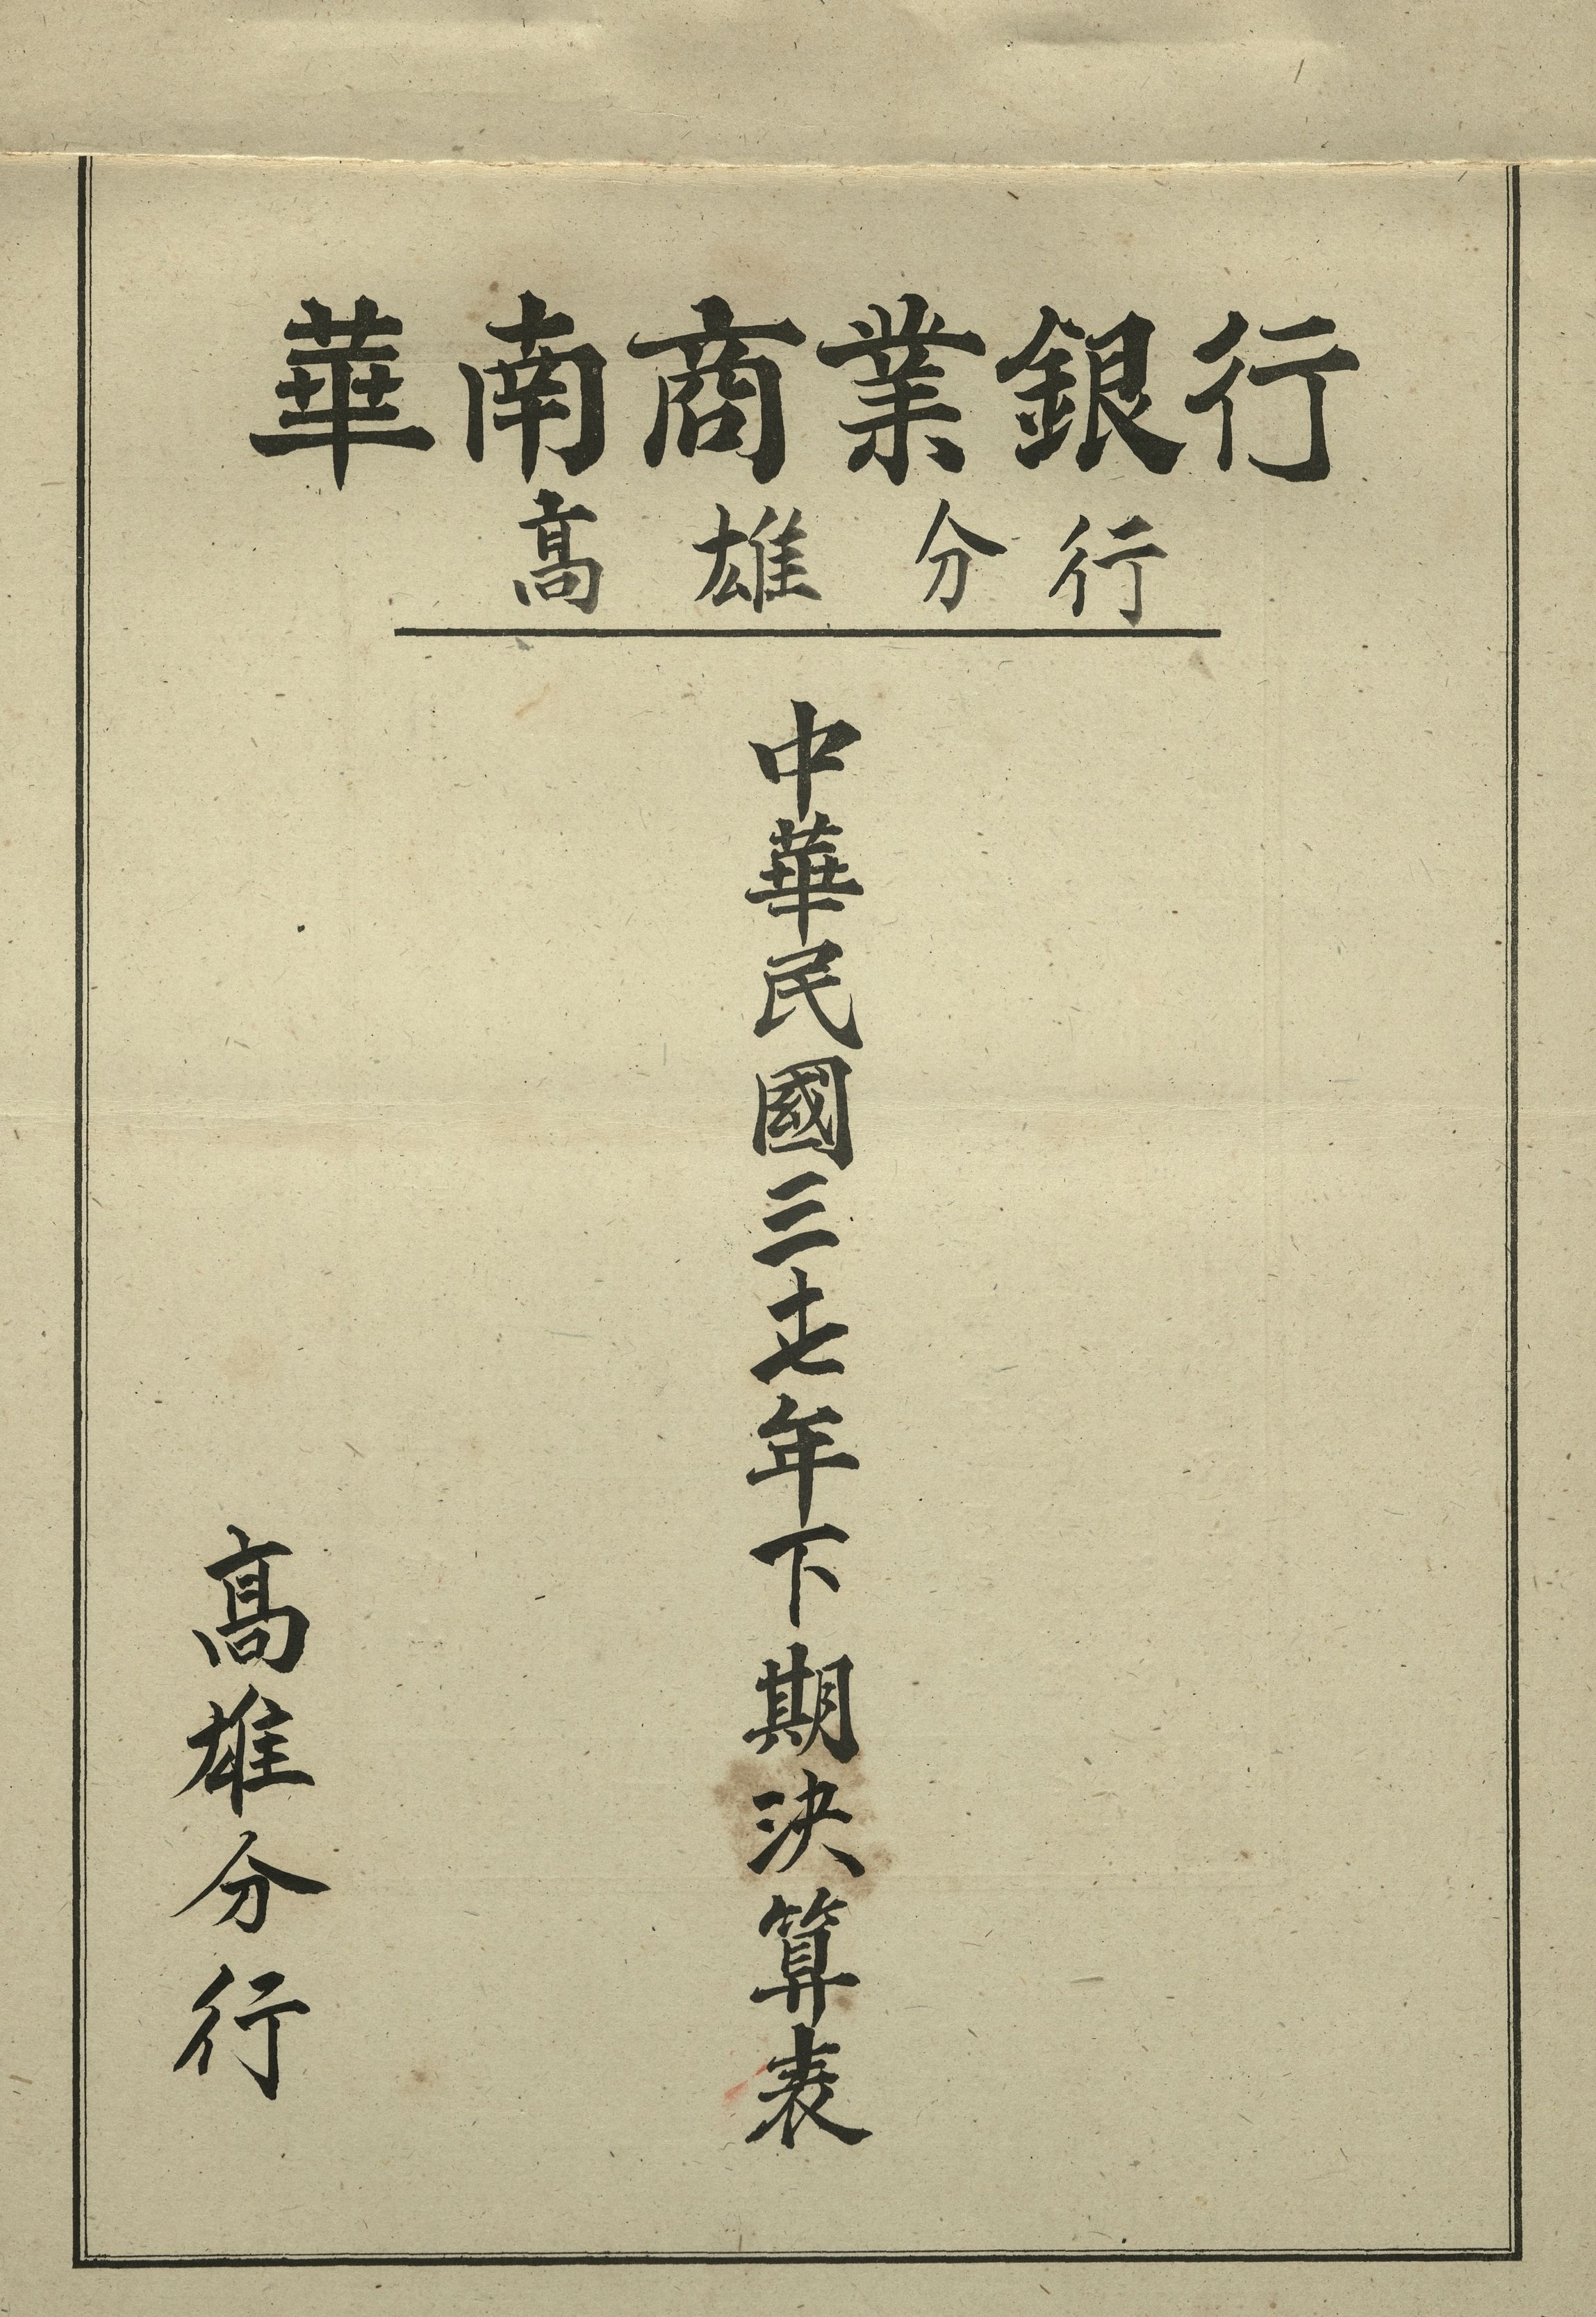 華南商業銀行
高雄分行
中華民國三十七年下期決算表
高雄分行